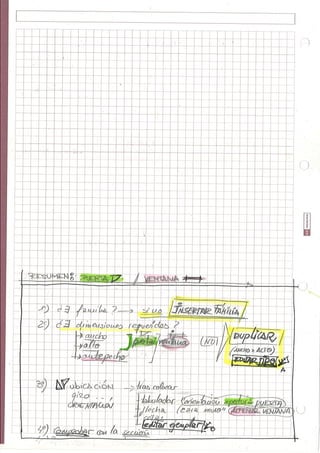 RESUMEN: PUERTA / VENTANA
1) ¿∃ familia? → si no INSERTAR FAMILIA
2) ¿∃ dimensiones requeridas?
→ ancho
→ alto
→ antepecho
puerta ventana (NO) DUPLICAR
(ANCHO x ALTO)
EDITAR TIPO
3) UBICACIÓN → tras colocar
giro
ORIENTACIÓN
tabulador (orientación apertura PUERTA)
flecha (cara muro) VENTANA
editar ejemplar
4) Comprobar en la sección